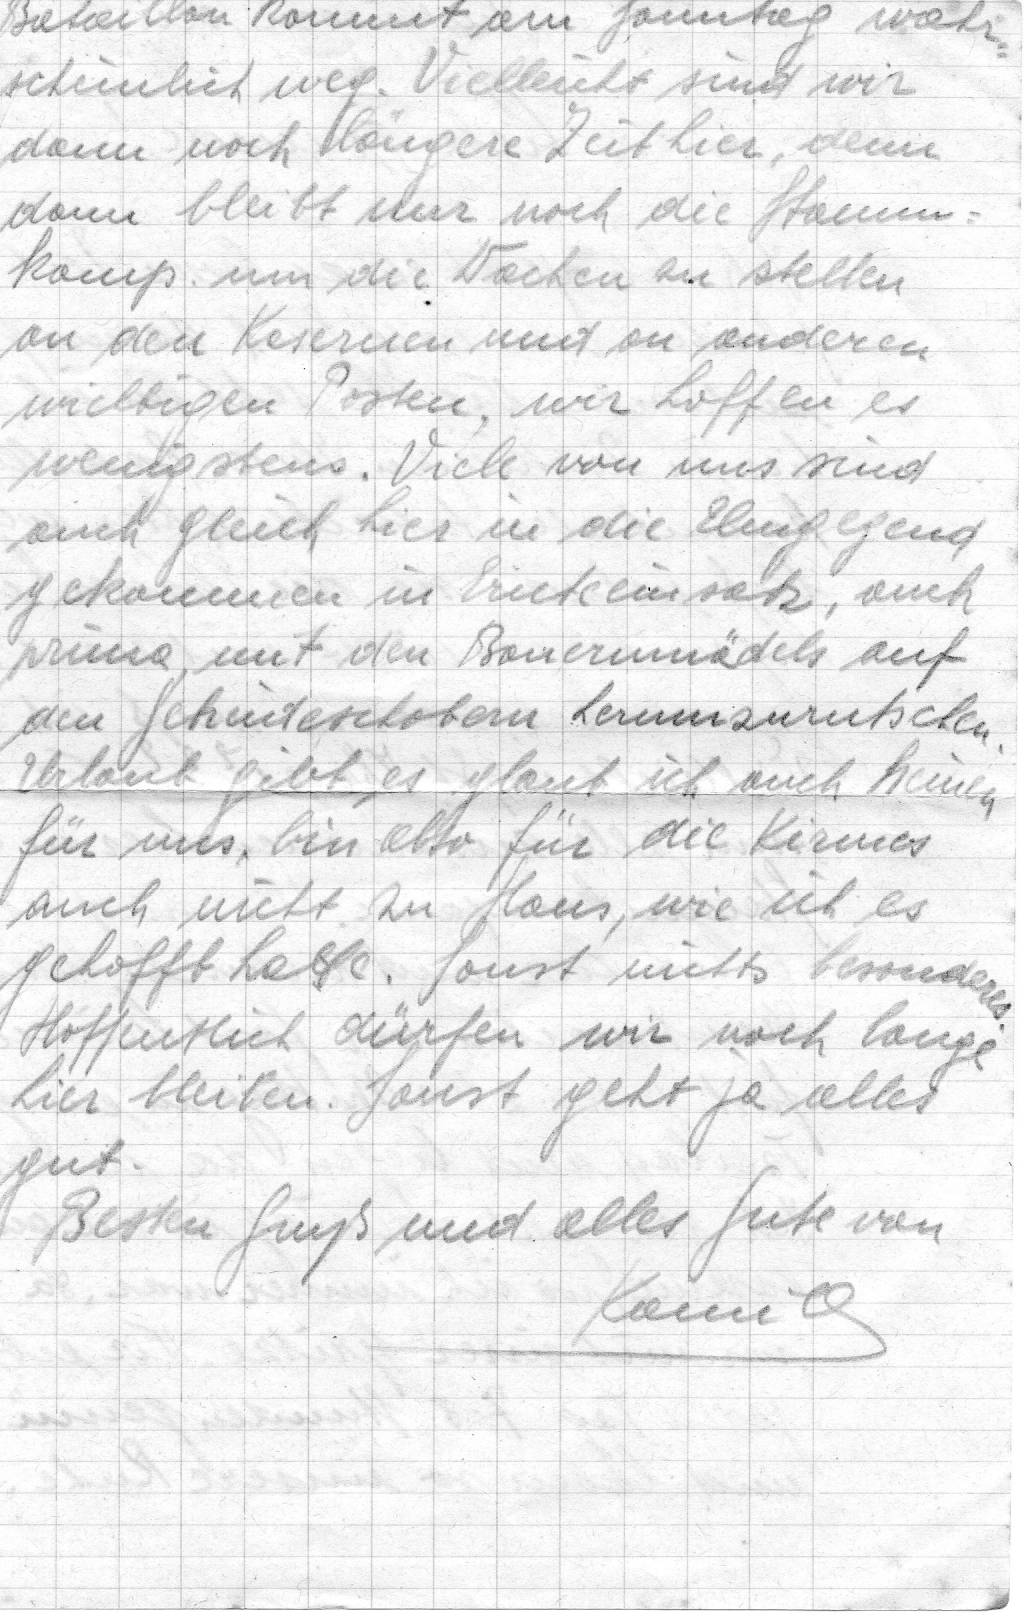 Bataillon kommt am Sonntag wahr=
scheinlich weg. Vielleicht sind wir
dann noch längere Zeit hier, denn
dann bleibt nur noch die Stamm=
komp. um die Wachen zu stellen
an den Kasernen und an anderen
wichtigen Posten, wir hoffen es
wenigstens. Viele von uns sind
auch gleich hier in die Umgegend
gekommen in Ernteeinsatz, auch
prima, mit den Bauernmädels auf
den Getreideschobern herumzurutschen.
Urlaub gibt es glaub ich auch keinen
für uns, bin also für die Kirmes
auch nicht zu Haus, wie ich es
gehofft hatte. Sonst nichts besonderes.
Hoffentlich dürfen wir noch lange
hier bleiben. Sonst geht ja alles
gut.
Besten Gruß und alles Gute von